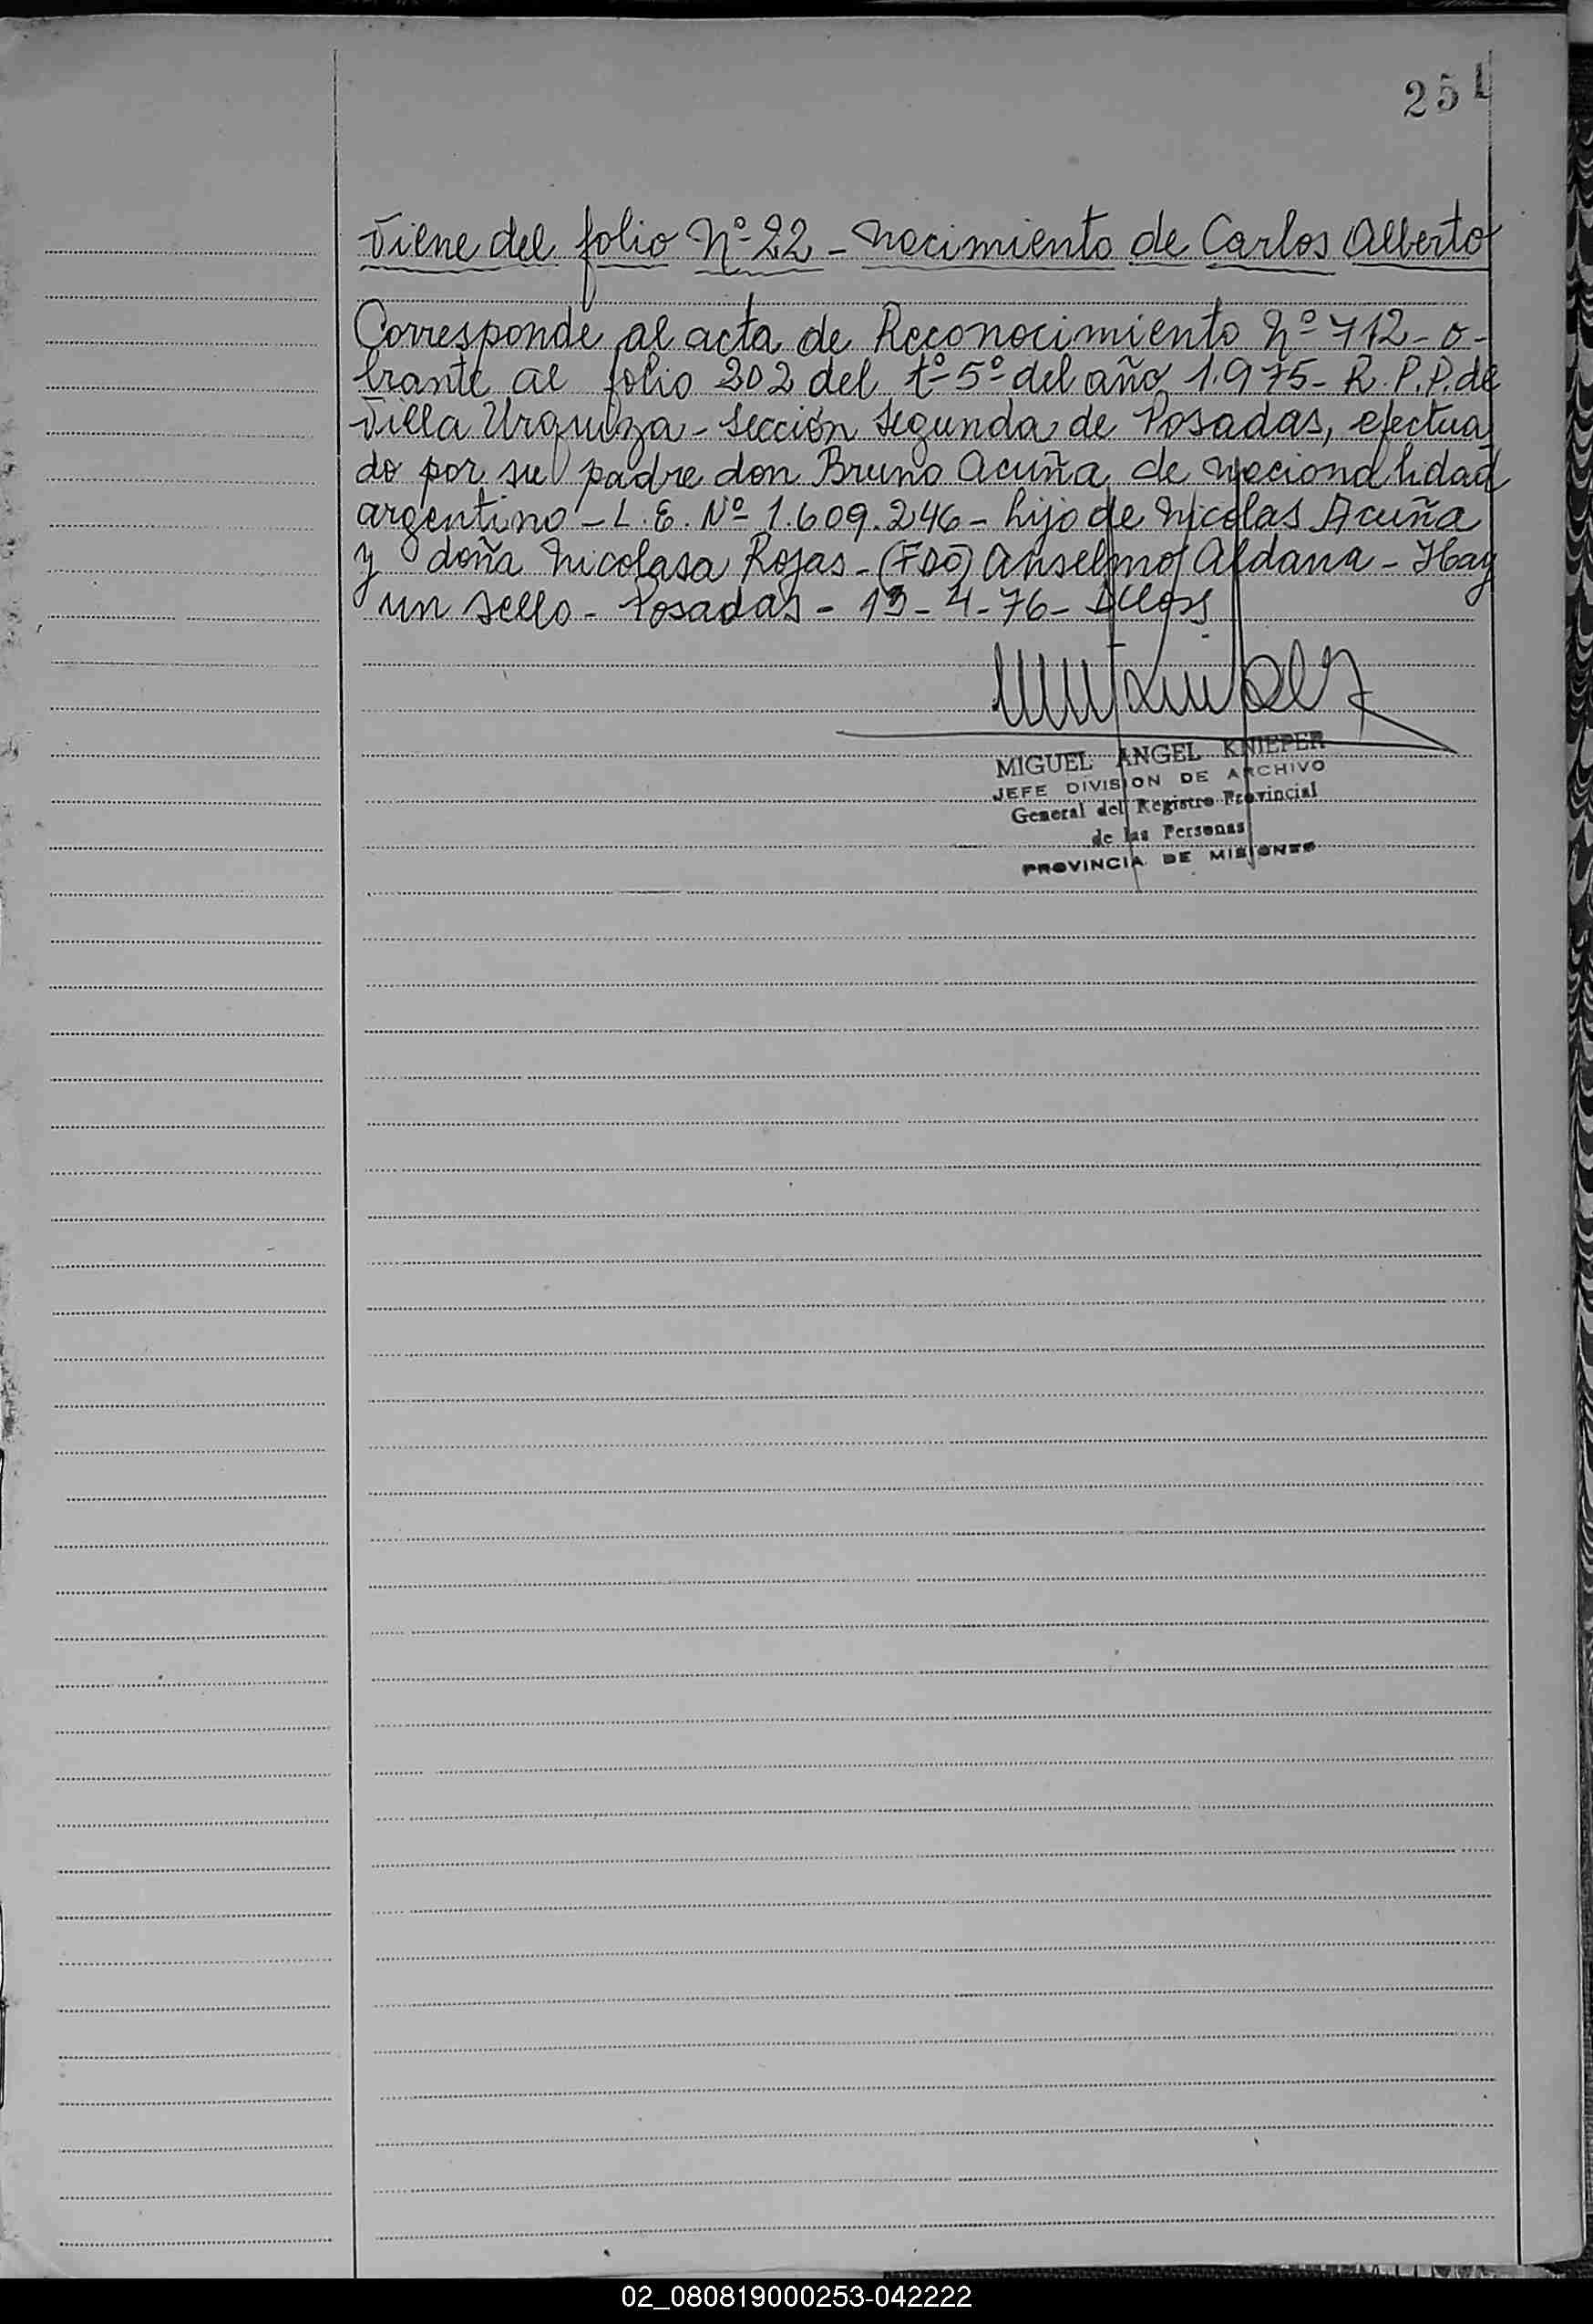 251
Viene del folio Nº 22 - Nacimiento de Carlos Alberto
Corresponde al acta de Reconocimiento Nº 712 - o-
brante al folio 202 del tº 5º del año 1.975 - R.P.P. de
Villa Urquiza - Sección Segunda de Posadas, efectua
do por su padre don Bruno Acuña, de nacionalidad
argentino - L.E. Nº 1.609.246 - hijo de Nicolas Acuña
y doña Nicolasa Rojas - (FDO) Anselmo Aldana - Hay
un sello - Posadas - 19-4-76 -
MIGUEL ANGEL KNIEPER
JEFE DIVISION DE ARCHIVO
General del Registro Provincial
de las Personas
PROVINCIA DE MISIONES
02_080819000253-042222